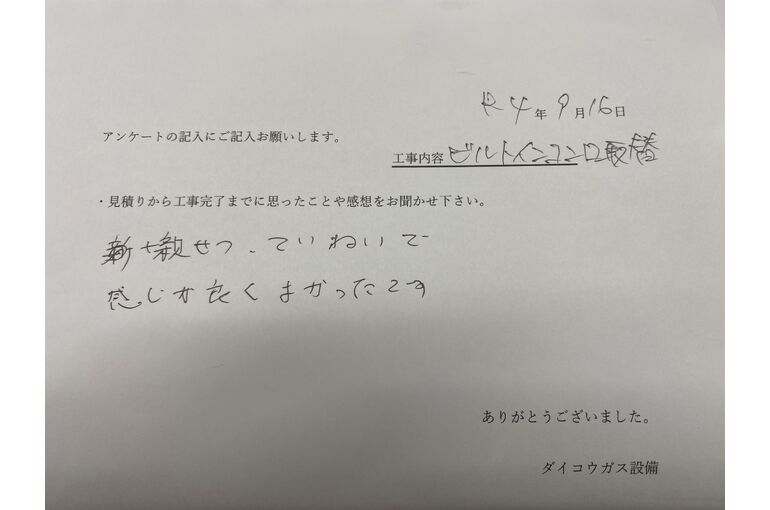 R4年9月16日
アンケートの記入にご記入お願いします。
工事内容 ビルトインコンロ取替
・見積りから工事完了までに思ったことや感想をお聞かせ下さい。
親せつ、ていねいで
感じが良くよかったです
ありがとうございました。
ダイコウガス設備